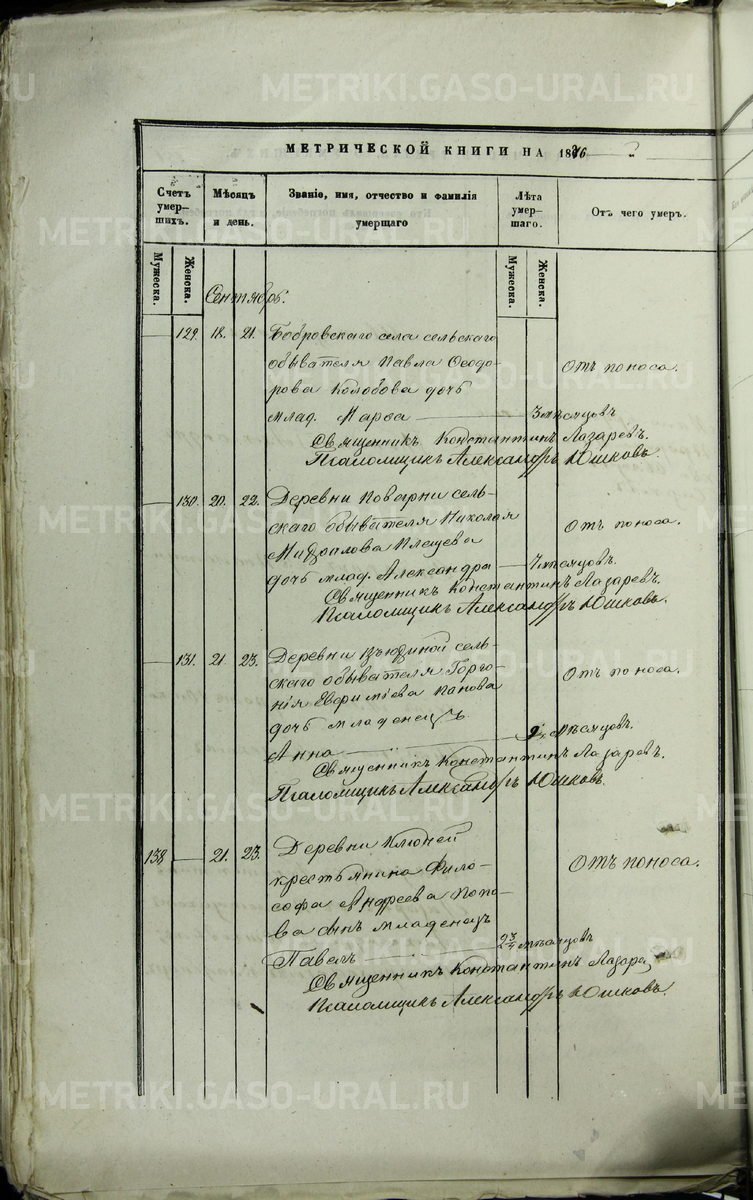 МЕТРИЧЕСКОЙ КНИГИ НА 1876
Счетъ умершихъ.
Мѣсяцъ и день.
Званіе, имя, отчество и фамилія умершаго
Лѣта умершаго.
Отъ чего умеръ.
Мужеска.
Женска.
Мужеска.
Женска.
Сентябрь.
129. 18. 21. Бобровскаго села сельскаго
обывателя Павла Ѳеодо-
рова Колобова дочь
млад. Марѳа 3 мѣсяцовъ
Отъ поноса.
Священникъ Константинъ Лазаревъ.
Псаломщикъ Александръ Юшковъ.
130. 20. 22. Деревни Поварни сель-
скаго обывателя Николая
Михаилова Плещева
дочь млад. Александра 7 мѣсяцовъ.
Отъ поноса.
Священникъ Константинъ Лазаревъ.
Псаломщикъ Александръ Юшковъ.
131. 21. 23. Деревни сель-
скаго обывателя Горго-
нія Евфиміева Панова
дочь младенецъ
Анна мѣсяцовъ.
Отъ поноса.
Священникъ Константинъ Лазаревъ.
Псаломщикъ Александръ Юшковъ.
138 21. 23. Деревни Ключей
крестьянина Фило-
софа Андреева Попо-
ва сынъ младенецъ
Павелъ 2 3/4 мѣсяцовъ
Отъ поноса.
Священникъ Константинъ Лазарев
Псаломщикъ Александръ Юшковъ.
METRIKI.GASO-URAL.RU